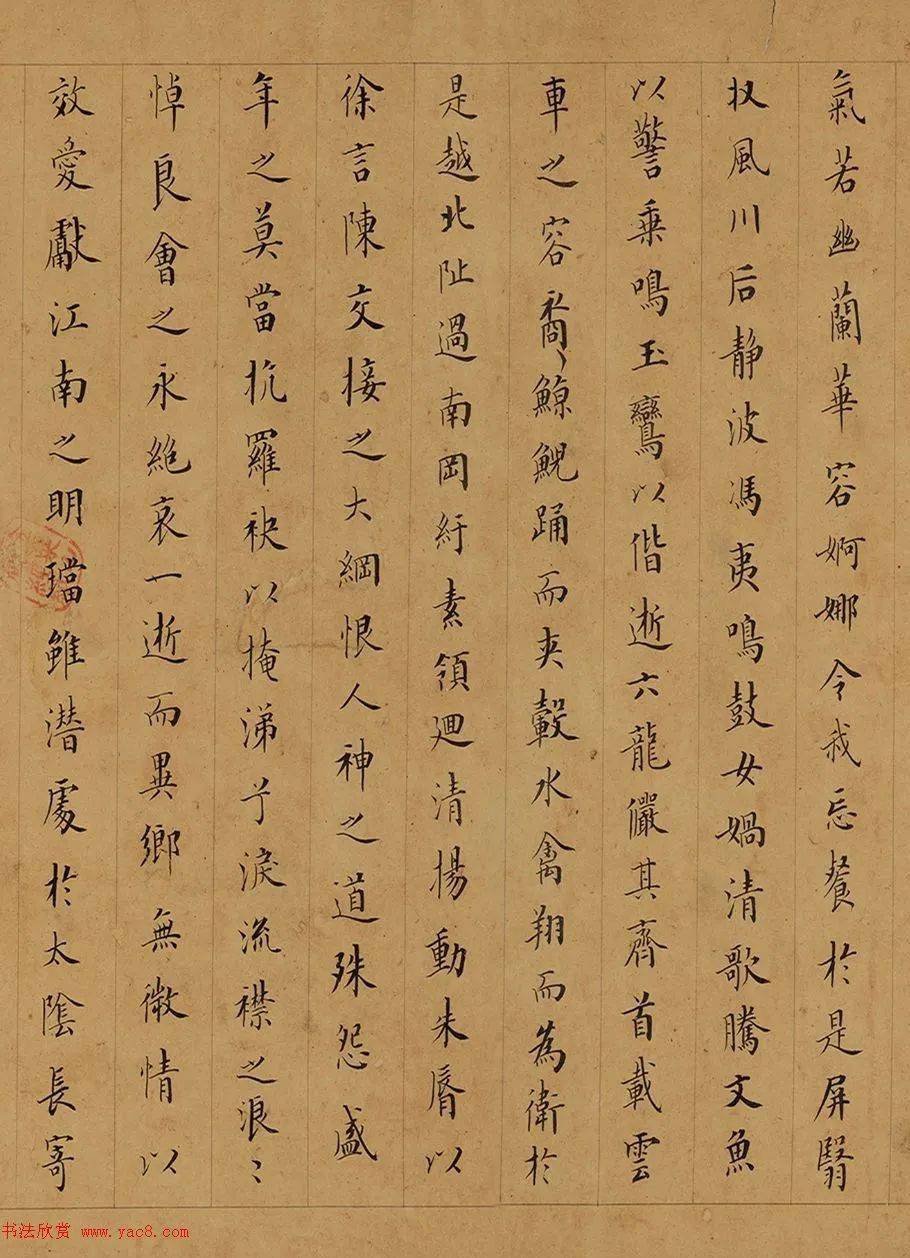 氣若幽蘭華容婀娜令我忘餐於是屏翳
收風川后靜波馮夷鳴鼓女媧清歌騰文魚
以警乗鳴玉鸞以偕逝六龍儼其齊首載雲
車之容裔〻鯨鯢踊而夾轂水禽翔而為衛於
是越北沚過南岡紆素領迴清揚動朱脣以
徐言陳交接之大綱恨人神之道殊怨盛
年之莫當抗羅袂以掩涕兮淚流襟之浪〻
悼良會之永絕哀一逝而異鄉無微情以
效愛獻江南之明璫雖潛處於太陰長寄
书法欣赏 www.yac8.com